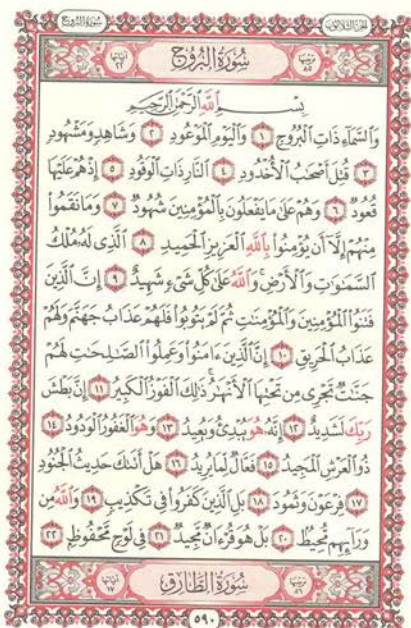 الجزء الثلاثون
سورة البروج
ترتيبها ٨٥
سُورَةُ الْبُرُوجِ
آياتها ٢٢
بِسْمِ اللَّهِ الرَّحْمَٰنِ الرَّحِيمِ
وَالسَّمَاءِ ذَاتِ الْبُرُوجِ ١ وَالْيَوْمِ الْمَوْعُودِ ٢ وَشَاهِدٍ وَمَشْهُودٍ
٣ قُتِلَ أَصْحَٰبُ الْأُخْدُودِ ٤ النَّارِ ذَاتِ الْوَقُودِ ٥ إِذْ هُمْ عَلَيْهَا
قُعُودٌ ٦ وَهُمْ عَلَىٰ مَا يَفْعَلُونَ بِالْمُؤْمِنِينَ شُهُودٌ ٧ وَمَا نَقَمُوا
مِنْهُمْ إِلَّا أَن يُؤْمِنُوا بِاللَّهِ الْعَزِيزِ الْحَمِيدِ ٨ الَّذِي لَهُ مُلْكُ
السَّمَٰوَٰتِ وَالْأَرْضِ وَاللَّهُ عَلَىٰ كُلِّ شَيْءٍ شَهِيدٌ ٩ إِنَّ الَّذِينَ
فَتَنُوا الْمُؤْمِنِينَ وَالْمُؤْمِنَٰتِ ثُمَّ لَمْ يَتُوبُوا فَلَهُمْ عَذَابُ جَهَنَّمَ وَلَهُمْ
عَذَابُ الْحَرِيقِ ١٠ إِنَّ الَّذِينَ ءَامَنُوا وَعَمِلُوا الصَّٰلِحَٰتِ لَهُمْ
جَنَّٰتٌ تَجْرِي مِن تَحْتِهَا الْأَنْهَٰرُ ذَٰلِكَ الْفَوْزُ الْكَبِيرُ ١١ إِنَّ بَطْشَ
رَبِّكَ لَشَدِيدٌ ١٢ إِنَّهُ هُوَ يُبْدِئُ وَيُعِيدُ ١٣ وَهُوَ الْغَفُورُ الْوَدُودُ ١٤
ذُو الْعَرْشِ الْمَجِيدُ ١٥ فَعَّالٌ لِّمَا يُرِيدُ ١٦ هَلْ أَتَىٰكَ حَدِيثُ الْجُنُودِ
١٧ فِرْعَوْنَ وَثَمُودَ ١٨ بَلِ الَّذِينَ كَفَرُوا فِي تَكْذِيبٍ ١٩ وَاللَّهُ مِن
وَرَائِهِم مُّحِيطٌ ٢٠ بَلْ هُوَ قُرْءَانٌ مَّجِيدٌ ٢١ فِي لَوْحٍ مَّحْفُوظٍ ٢٢
ترتيبها ٨٦
سُورَةُ الطَّارِقِ
آياتها ١٧
٥٩٠